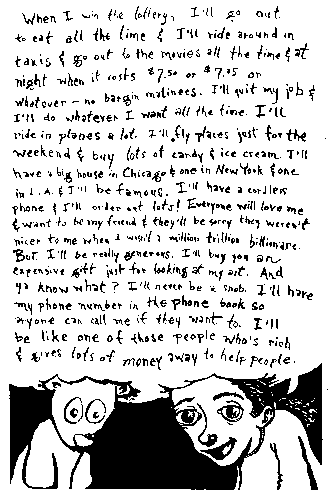 When I win the lottery, I'll go out
to eat all the time & I'll ride around in
taxis & go out to the movies all the time & at
night when it costs $7.50 or $7.75 or
whatever – no bargin matinees. I'll quit my job &
I'll do whatever I want all the time. I'll
ride in planes a lot. I'll fly places just for the
weekend & buy lots of candy & ice cream. I'll
have a big house in Chicago & one in New York & one
in L.A. & I'll be famous. I'll have a cordless
phone & I'll order out lots! Everyone will love me
& want to be my friend & they'll be sorry they weren't
nicer to me when I wasn't a million trillion billionaire.
But I'll be really generous. I'll buy you an
expensive gift just for looking at my art. And
ya know what? I'll never be a snob. I'll have
my phone number in the phone book so
anyone can call me if they want to. I'll
be like one of those people who's rich
& gives lots of money away to help people.